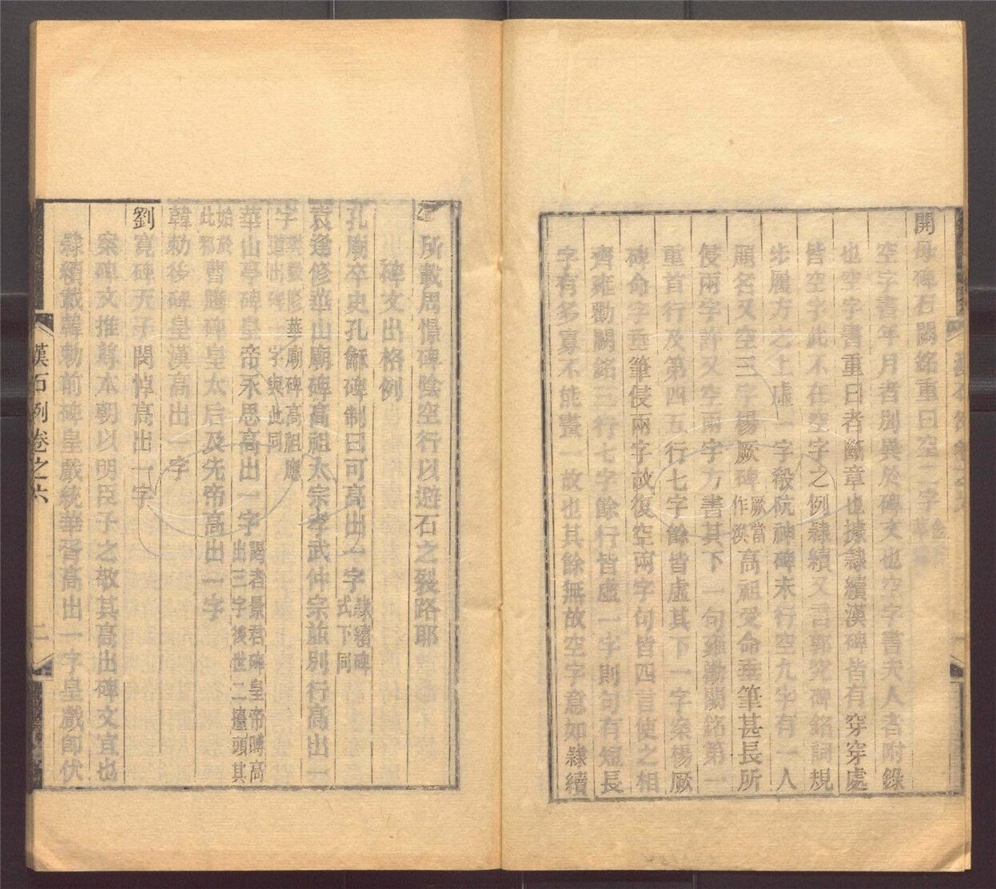 開母碑石闕銘重曰空二字
空字書年月者別異於碑文也空字書夫人者附錄
也空字書重曰者斷章也據隸續漢碑皆有穿穿處
皆空字此不在空字之例隸續又言郭究碑銘詞規
步履方之上虛一字殽阬神碑末行空九字有一人
題名又空三字楊厥碑厥當作淮高祖受命垂筆甚長所
侵兩字許又空兩字方書其下一句雍勸闕銘第一
重首行及第四五行七字餘皆虛其下一字案楊厥
碑命字垂筆侵兩字故復空兩字句皆四言使之相
齊雍勸闕銘三行七字餘行皆虛一字則句有短長
字有多寡不能畫一故也其餘無故空字意如隸續
所載周憬碑陰空行以避石之裂路耶
碑文出格例
孔廟卒史孔龢碑制曰可高出一字隸續碑式下同
袁逢修華山廟碑高祖太宗孝武仲宗並別行高出一
字樊毅修華廟碑高祖應道出碑一字與此同
華山亭碑皇帝永思高出一字
始於此邪曹騰碑皇太后及先帝高出一字
韓勅修碑皇漢高出一字
劉寬碑天子閔悼高出一字
案碑文推尊本朝以明臣子之敬其高出碑文宜也
隸續載韓勅前碑皇戲統華胥高出一字皇戲即伏
漢石例卷之六
二